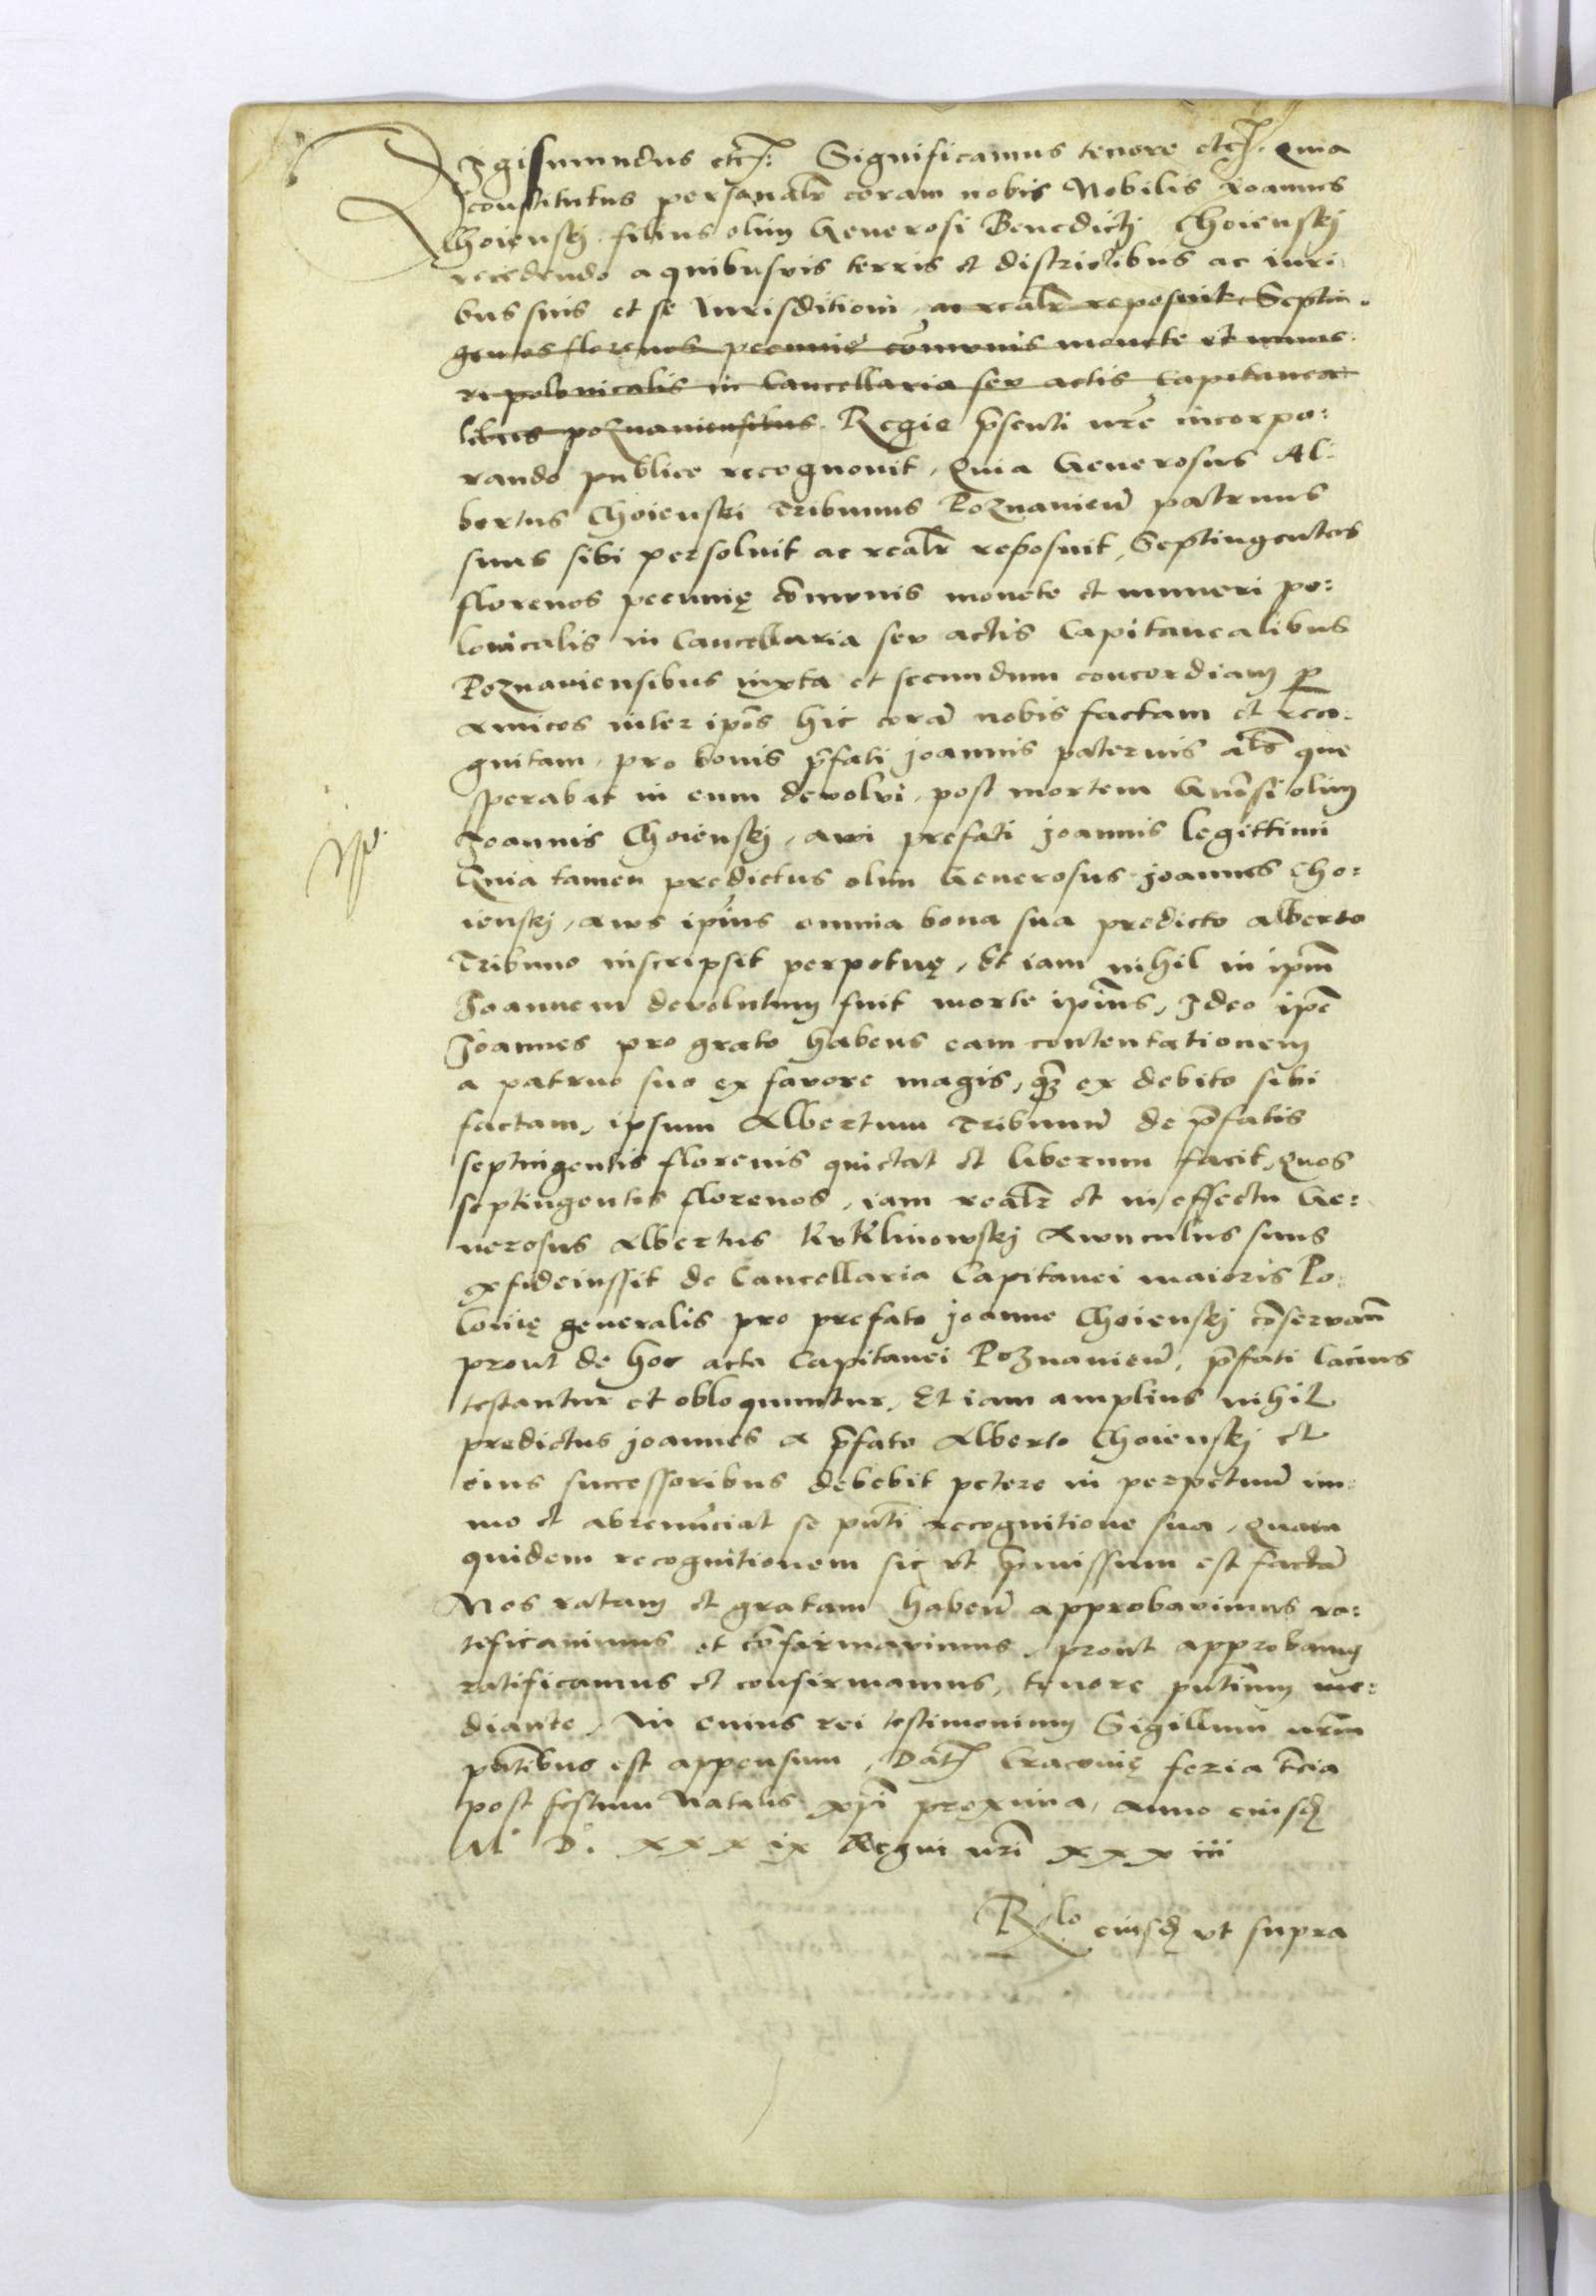 Sigismundus etc: Significamus tenore etc. quia
constitutus personalr coram nobis Nobilis Joannes
Choienskj filius olim Generosi Benedictj Choienskj
recedendo a quibusvis terris et districtibus ac iuri
bus suis et se Iurisditioni ac realr reposuit Septin-
gentos florenos pecunie cōmunis monete et nume-
ri polonicalis in Cancellaria seu actis Capitanea
libus poznaniensibus Regie p̄senti nr̄e incorpo:
rando publice recognovit, Quia Generosus Al-
bertus Choienski Tribunus Poznanien̄ patruus
suus sibi persolvit ac realr reposuit, Septingentos
florenos pecunię cōmunis monete et numeri po:
lonicalis in Cancellaria seu actis Capitanealibus
Poznaniensibus iuxta et secundum concordiam p
amicos inter ip̄os hic corā nobis factam et reco-
gnitam, pro bonis p̄fati joannis paternis al̄s que
sperabat in eum devolvi, post mortem Gn̄osi olim
Joannis Choienskj, avi prefati joannis legittimi
Quia tamen predictus olim Generosus joannes Cho:
ienskj, avus ip̄ius omnia bona sua predicto alberto
Tribuno inscripsit perpetuę, Et iam nihil in ip̄m
Joannem devolutum fuit morte ip̄ius, Ideo ip̄e
Joannes pro grato habens eam contentationem
a patruo suo ex favore magis, q̄ ex debito sibi
factam, ipsum Albertum Tribunū de p̄fatis
septuigentis florenis quictat et liberum facit, quos
septingentos florenos, iam realr et in effectu Ge:
nerosus Albertus Kuklinowskj Avunculus suus
exfideiussit de Cancellaria Capitanei maioris Po-
lonię generalis pro prefato joanne Choienskj cōservan̄
prout de hoc acta Capitanei Poznanien̄, p̄fati lacius
testantur et obloquuntur, Et iam amplius nihil
predictus joannes a p̄fato Alberto Choienskj et
eius successoribus debebit petere in perpetuū im-
mo et abrenūciat se pn̄ti recognitione sua, quam
quidem recognitionem sic ut p̄missum est factā
Nos ratam et gratam haben̄ approbavimus ra:
tificavimus et cōfirmavimus, prout approbamus
ratificamus et confirmamus, tenore pn̄tium me:
diante, In cuius rei testimonium Sigillum nr̄m
pn̄tibus est appensum, Dat Cracovię feria t̄cia
post festum Natalis xp̄i proxima, anno eiusd
M° D° xxxix Regni nr̄i xxxiii
Rlo eiusd ut supra